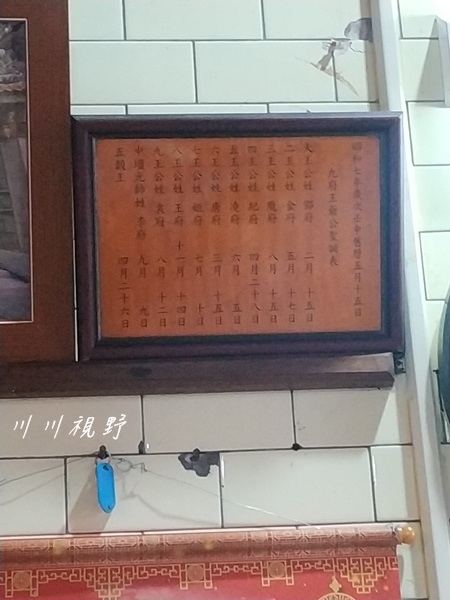 昭和七年歲次壬申舊曆五月十五日
九府王爺公聖誕表
大王公姓 鄧府 二月 十五日
二王公姓 金府 五月 十七日
三王公姓 八月 十五日
四王公姓 紀府 四月 二十八日
五王公姓 凌府 六月 五日
六王公姓 唐府 三月 十五日
七王公姓 姬府 七月 十日
八王公姓 王府 十一月 十四日
九王公姓 八月 十二日
中壇元帥姓 李府 九月 九日
五顯王 四月 二十六日
川川視野